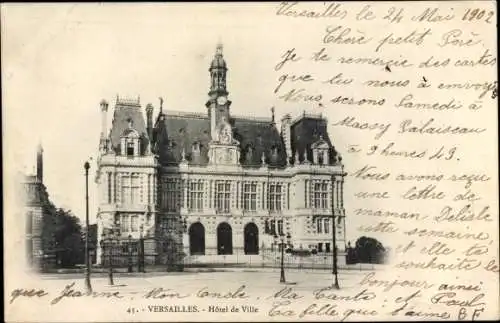 Versailles le 24 Mai 1902
Chère petit
Je te remercie des cartes
que tu nous a envoyé
Nous serons Samedi à
Massy Palaiseau
à 9 heures 43.
Nous avons reçu
une lettre de
maman Delisle
cette semaine
et elle te
souhaite le
bonjour ainsi
que Jeanne. Mon Oncle et Ma tante et
Paul. Ca fête
B F
45. - VERSAILLES. - Hôtel de Ville